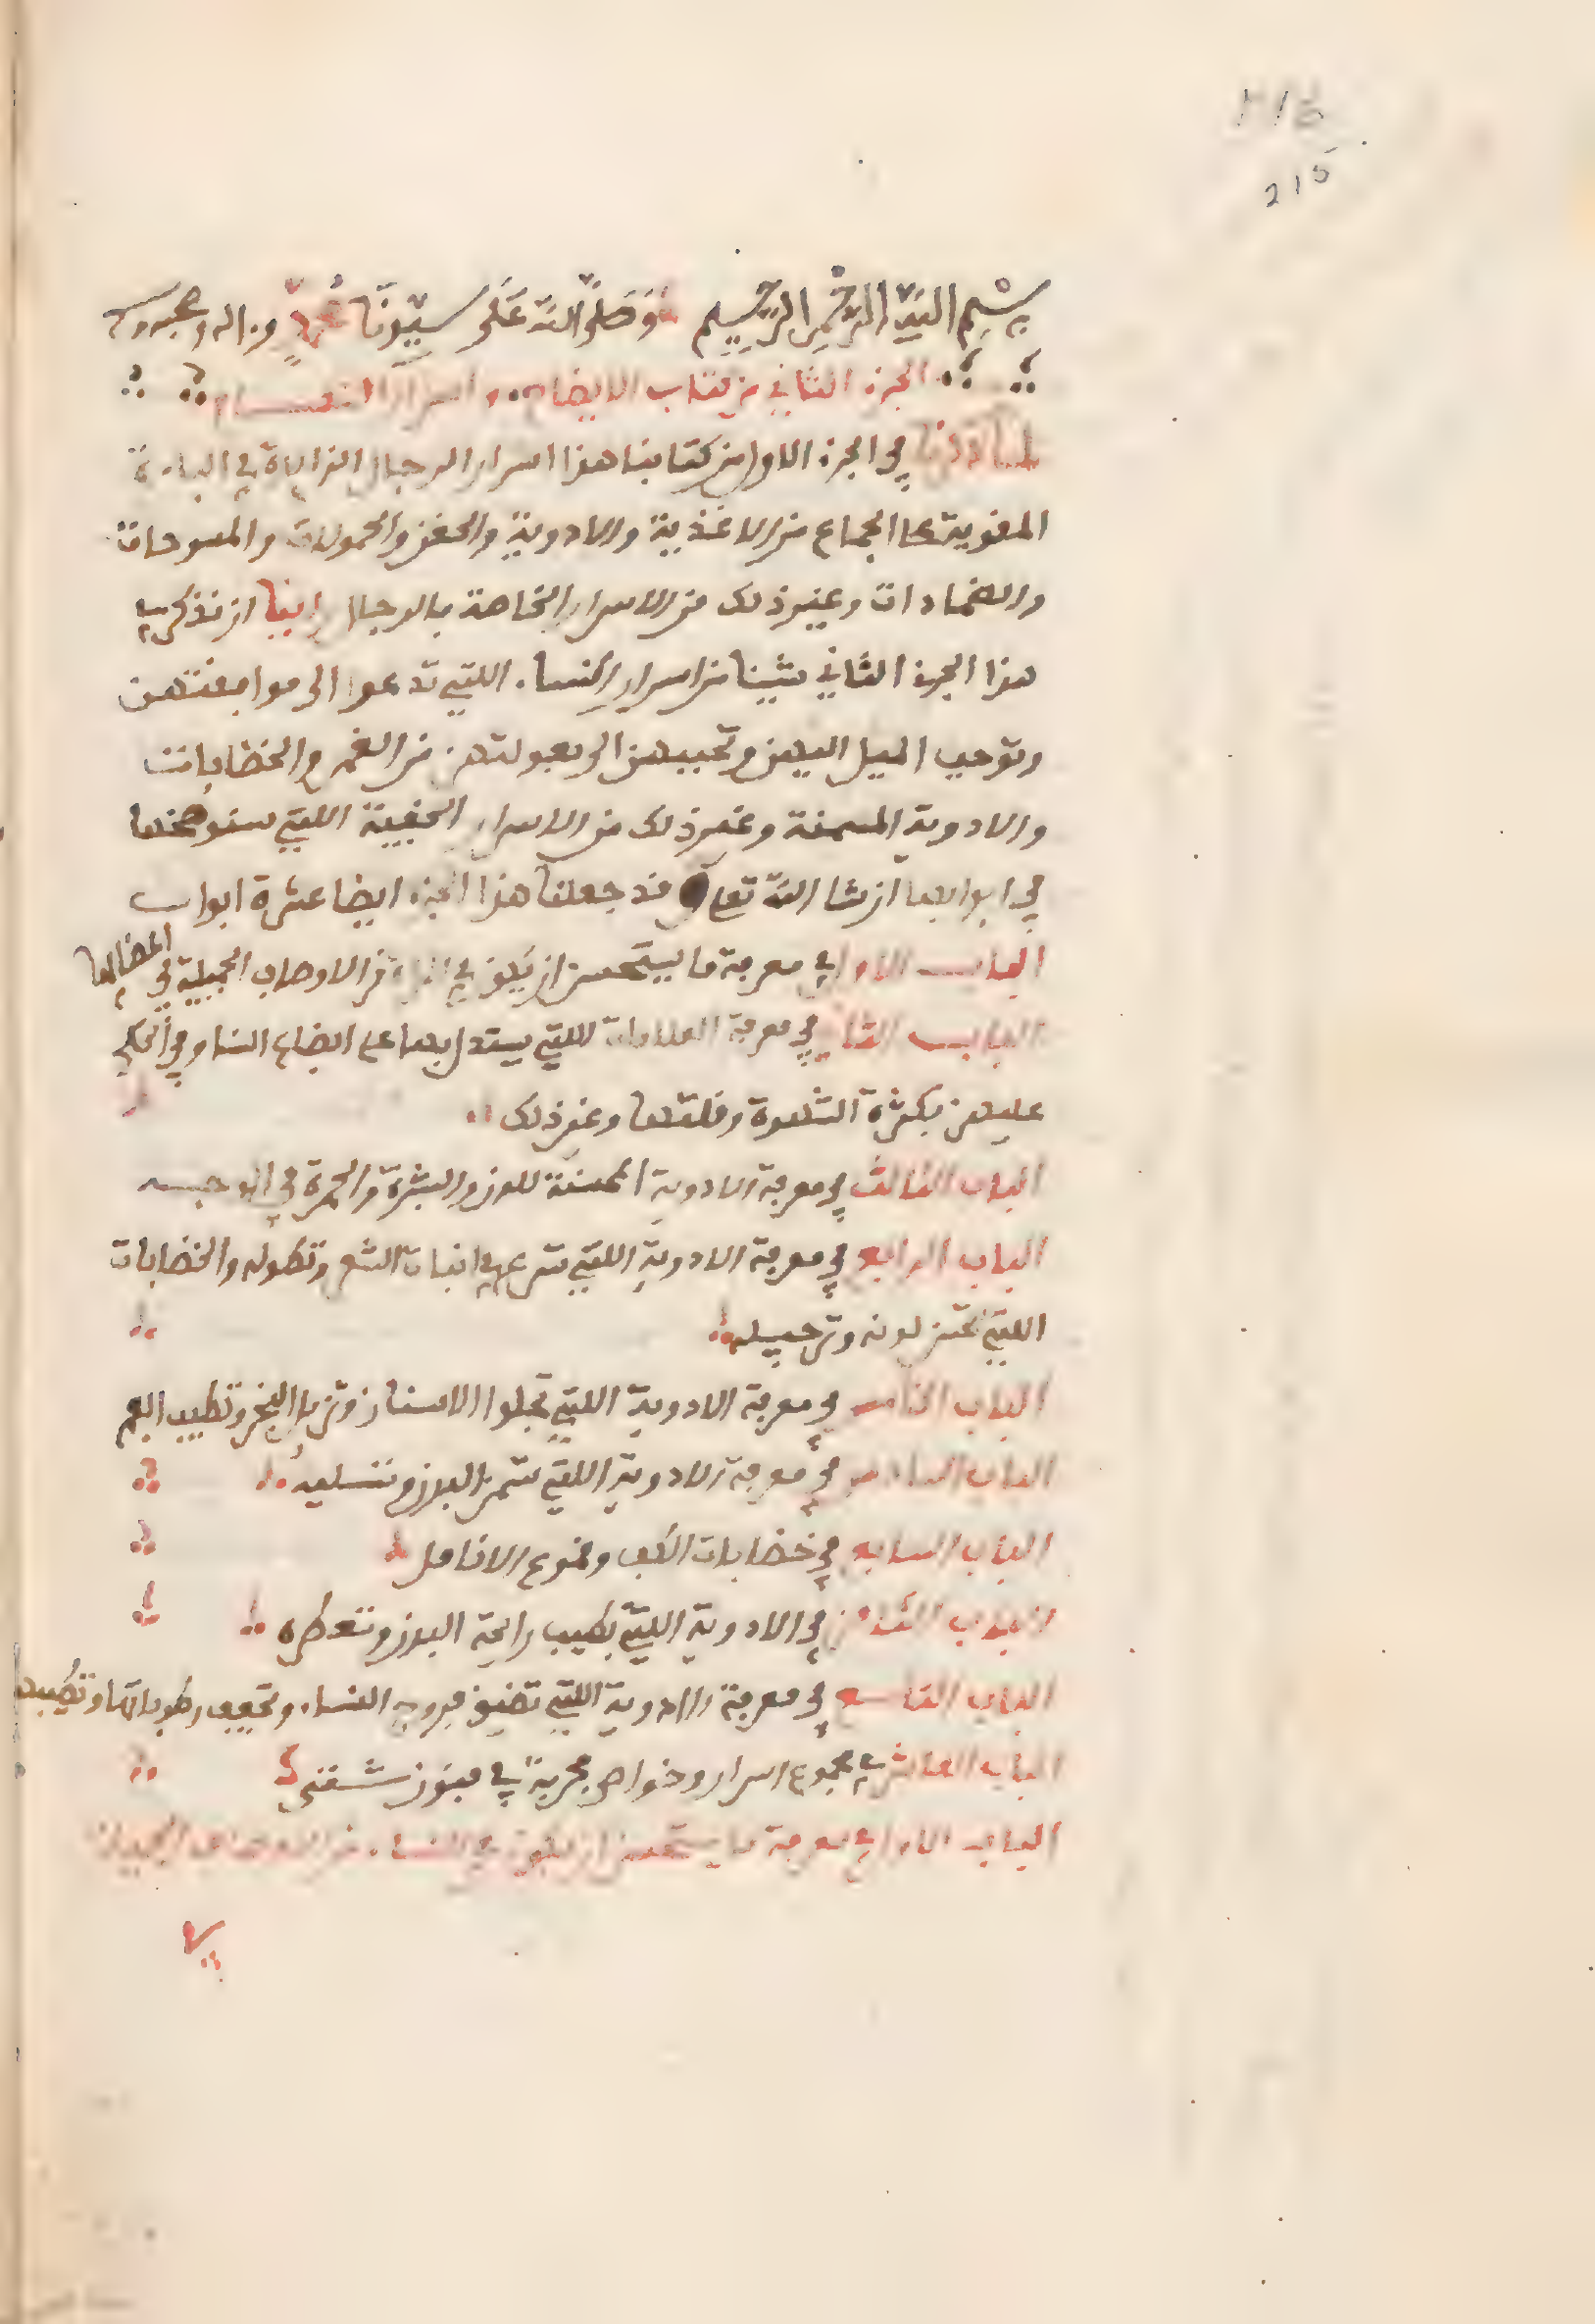 215
بسم الله الرحمن الرحيم وصلى الله على سيدنا محمد وءاله وصحبه
الجزء الثاني من كتاب الايضاح واسرار النكاح
لما ذكرنا في الجزء الاول من كتابنا هذا اسرار الرجال الزايدة في الباءة
المقوية على الجماع من الاغذية والادوية والحقن والحمولات والمسوحات
والضمادات وغير ذلك من الاسرار الخاصة بالرجال راينا ان نذكر في
هذا الجزء الثاني شيئا من اسرار النساء اللتي تدعوا الى موافقتهن
وتوجب الميل اليهن وتحببهن الى بعولتهن من الغمر والخضابات
والادوية المسمنة وغير ذلك من الاسرار الخفية اللتي سنوضحها
في ابوابها ان شا الله تعلى وقد جعلنا هذا الجزء ايضا عشرة ابواب
الباب الاول في معرفة ما يستحسن ان يكون في من الاوصاف الجميلة في
الباب الثاني في معرفة العلامات اللتي يستدل بها على ابضاع النسا وفي الحكم
عليهن بكثرة الشهوة وقلتها وغير ذلك
الباب الثالث في معرفة الادوية المحسنة للون والبشرة والحمرة في الوجه
الباب الرابع في معرفة الادوية اللتي تسرع في انبات الشعر وتطوله والخضابات
اللتي تحسن لونه وترجيله
الباب الخامس في معرفة الادوية اللتي تجلوا الاسنان وتزيل البخر وتطيب الفم
الباب السادس في معرفة الادوية اللتي تسمن البدن وتنسليه
الباب السابع في خضابات الكف وقموع الانامل
الباب الثامن في الادوية اللتي تطيب رايحة البدن وتعطره
الباب التاسع في معرفة الادوية اللتي تضيق فروج النساء وتجفف رطوباتها وتطيبها
الباب العاشر في مجموع اسرار وخواص مجربة في فنون شتى
الباب الاول في معرفة ما يستحسن ان يكون في النساء من الاوصاف الجميلة